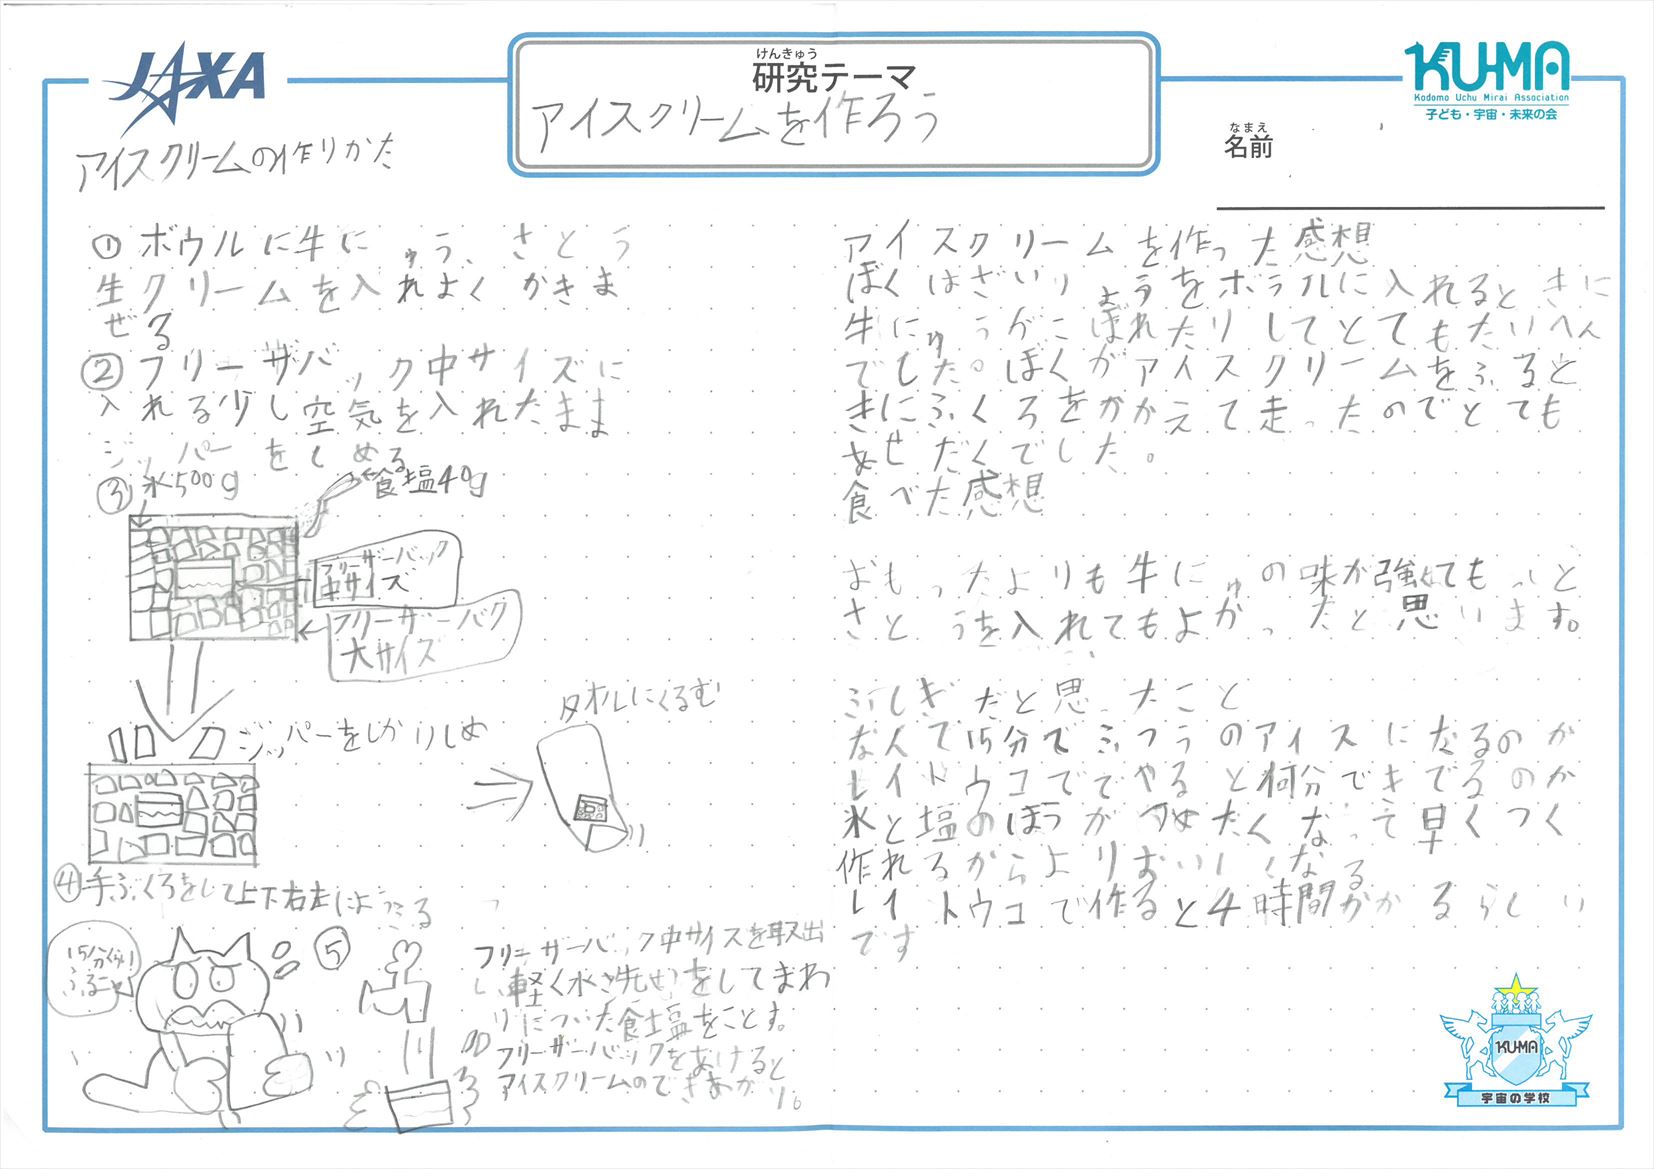 JAXA
けんきゅう
研究テーマ
アイスクリームを作ろう
KU-MA
Kodomo Uchu Mirai Association
子ども・宇宙・未来の会
なまえ
名前
アイスクリームの作りかた
① ボウルに牛にゅう、さとう
生クリームを入れよくかきま
ぜる
② フリーザバック中サイズに
入れる少し空気を入れたまま
ジッパーをしめる
③ 氷500g
食塩40g
フリーザーバック
中サイズ
フリーザーバク
大サイズ
ジッパーをしかりしめ
タオルにくるむ
④手ぶくろをして上下右左によう
15分くらい
ふるこ
⑤
フリーザーバック中サイズを取出
し軽く水
りについた食塩を
フリーザーバックをあけると
アイスクリームのできあがり。
アイスクリームを作った感想
ぼくはざいりょうをボウルに入れるときに
牛にゅうがこぼれたりしてとてもたいへん
でした。ぼくがアイスクリームをふると
きにふくろをかかえて走ったのでとても
あせだくでした。
食べた感想
おもったよりも牛にゅの味が強くてもっと
さとうを入れてもよかったと思います。
ふしぎだと思ったこと
なんで15分でふつうのアイスになるのか
レイトウコででやると何分できでるのか
氷と塩のほうがつめたくなって早くつく
作れるからよりおいしくなる
レイトウコで作ると4時間かかるらしい
です
KU-MA
宇宙の学校